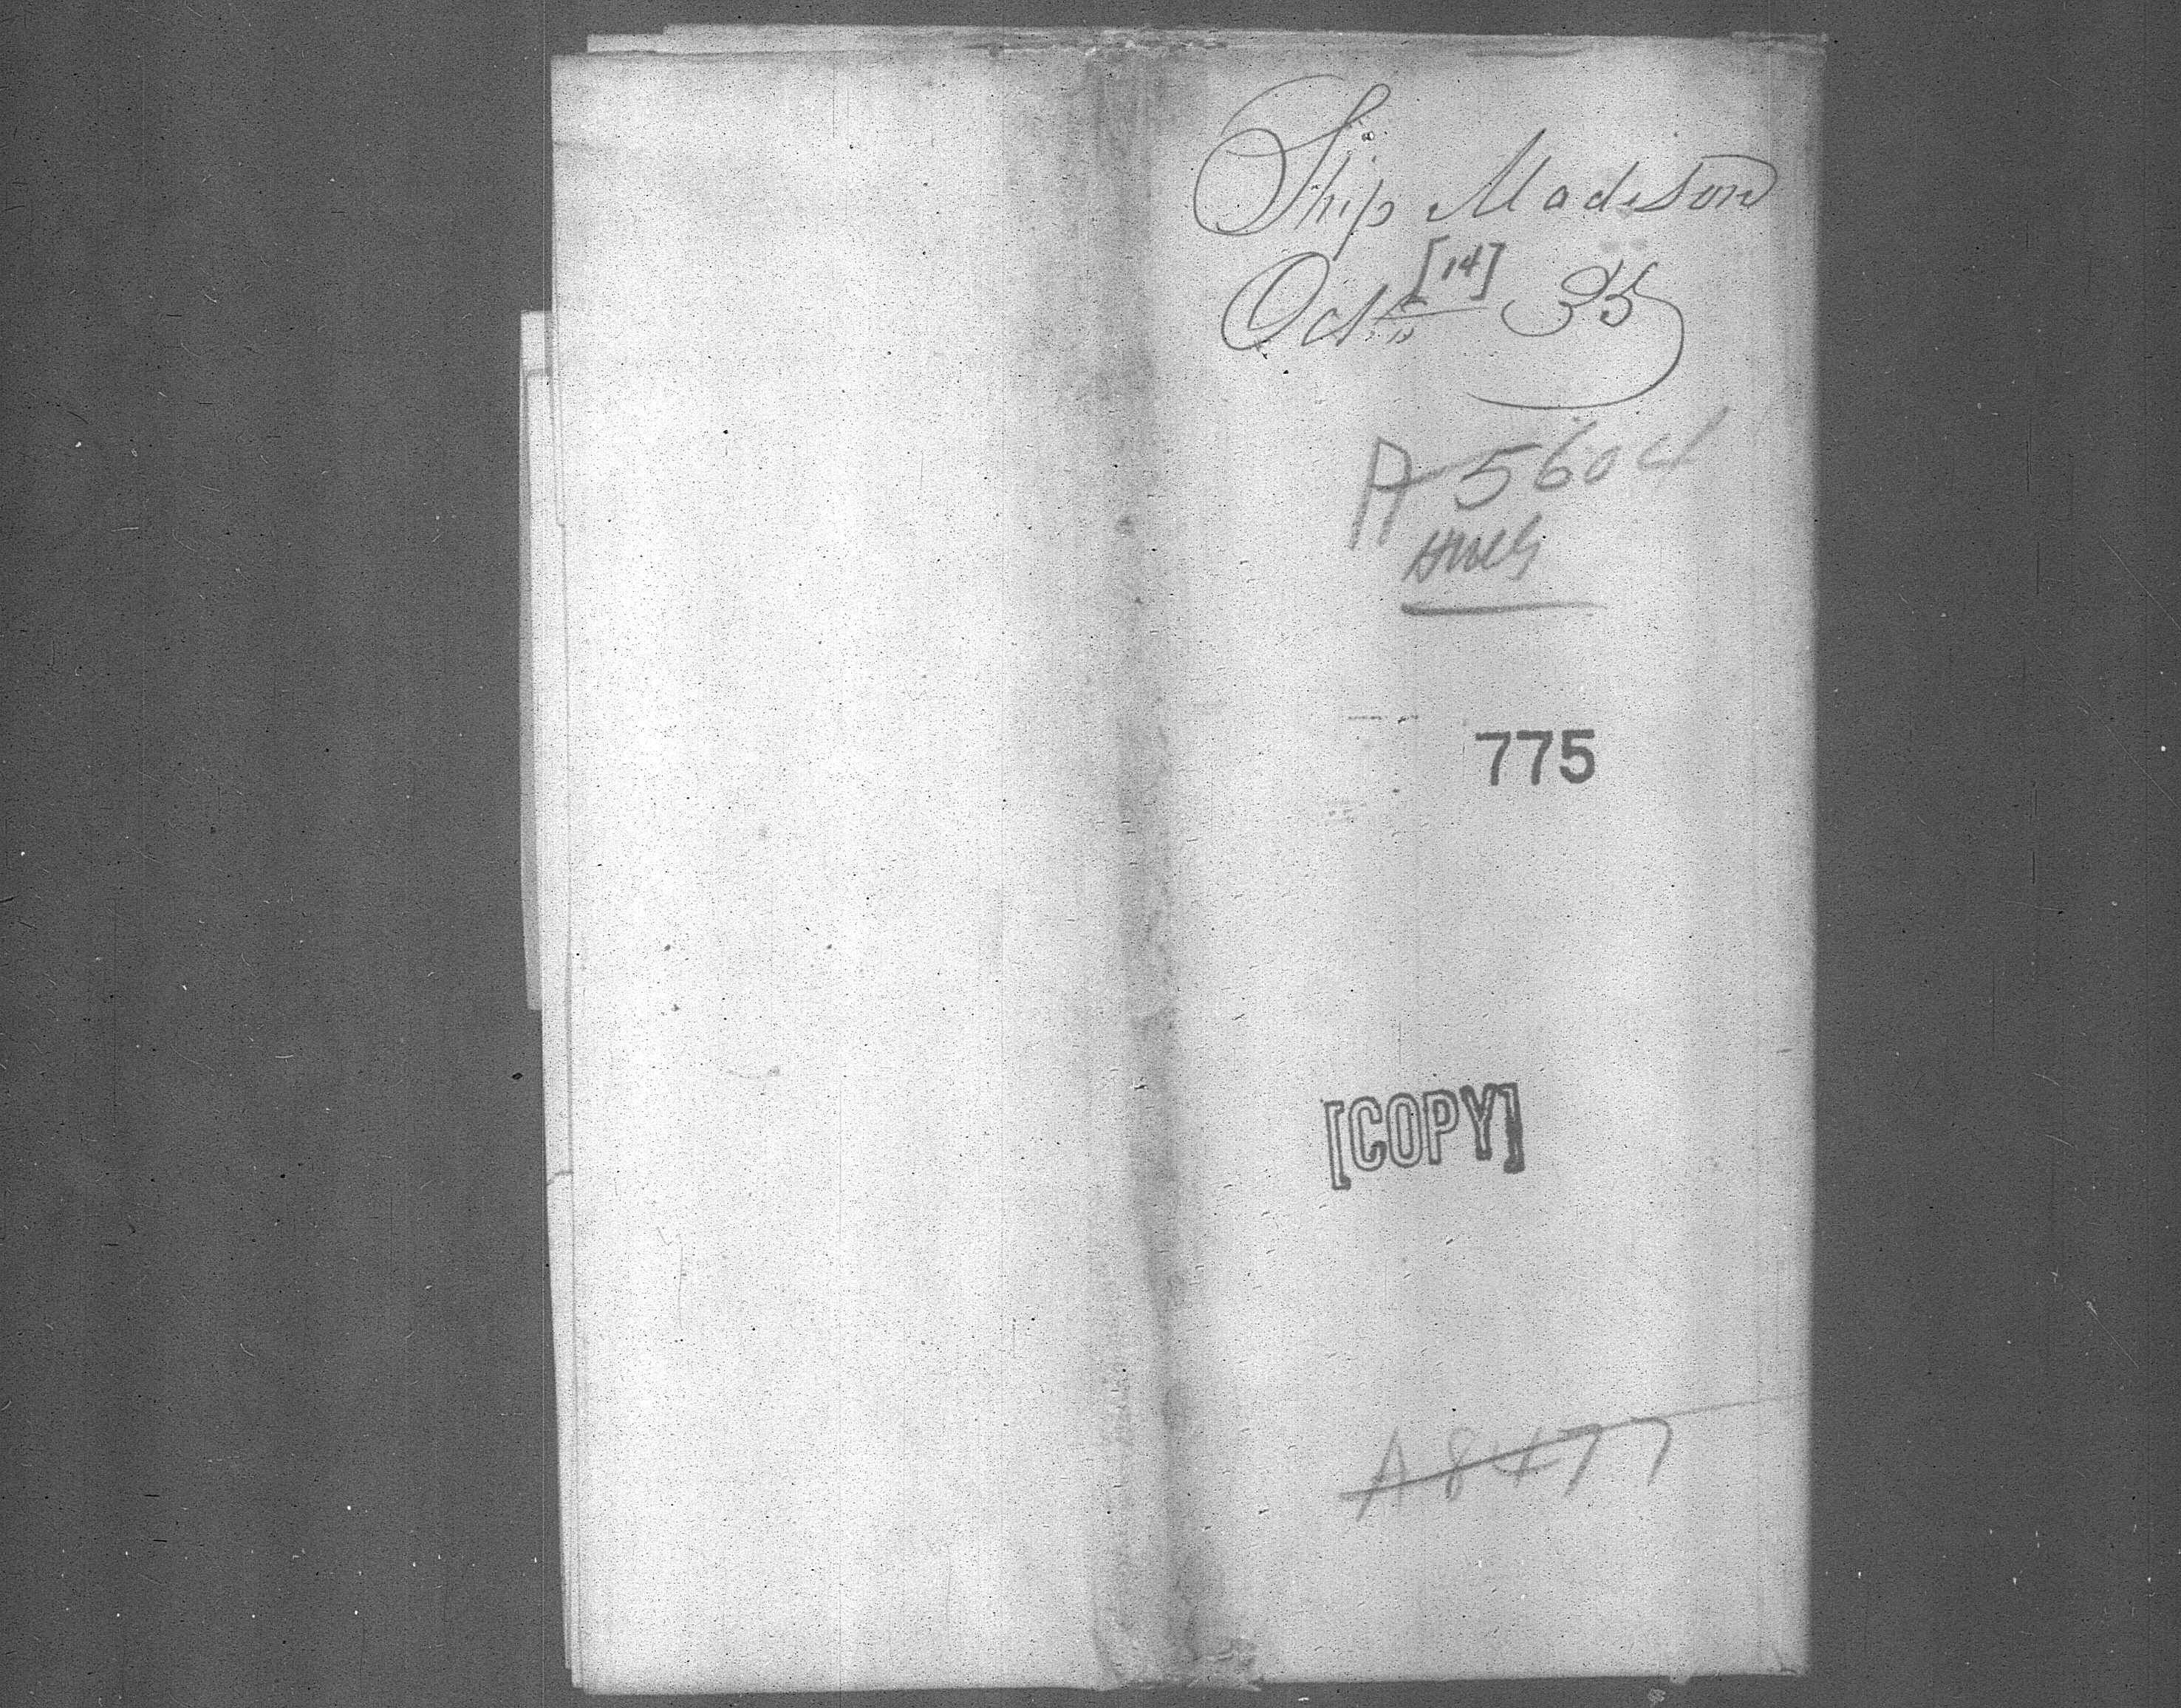 Ship Madison
Oct [14] 35
A 5604
775
[COPY]
A8477